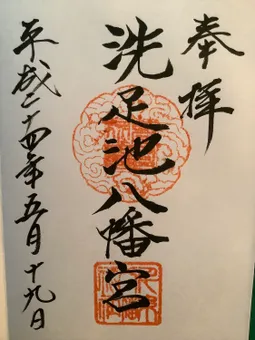 奉拝
洗足池八幡宮
平成二十四年五月十九日